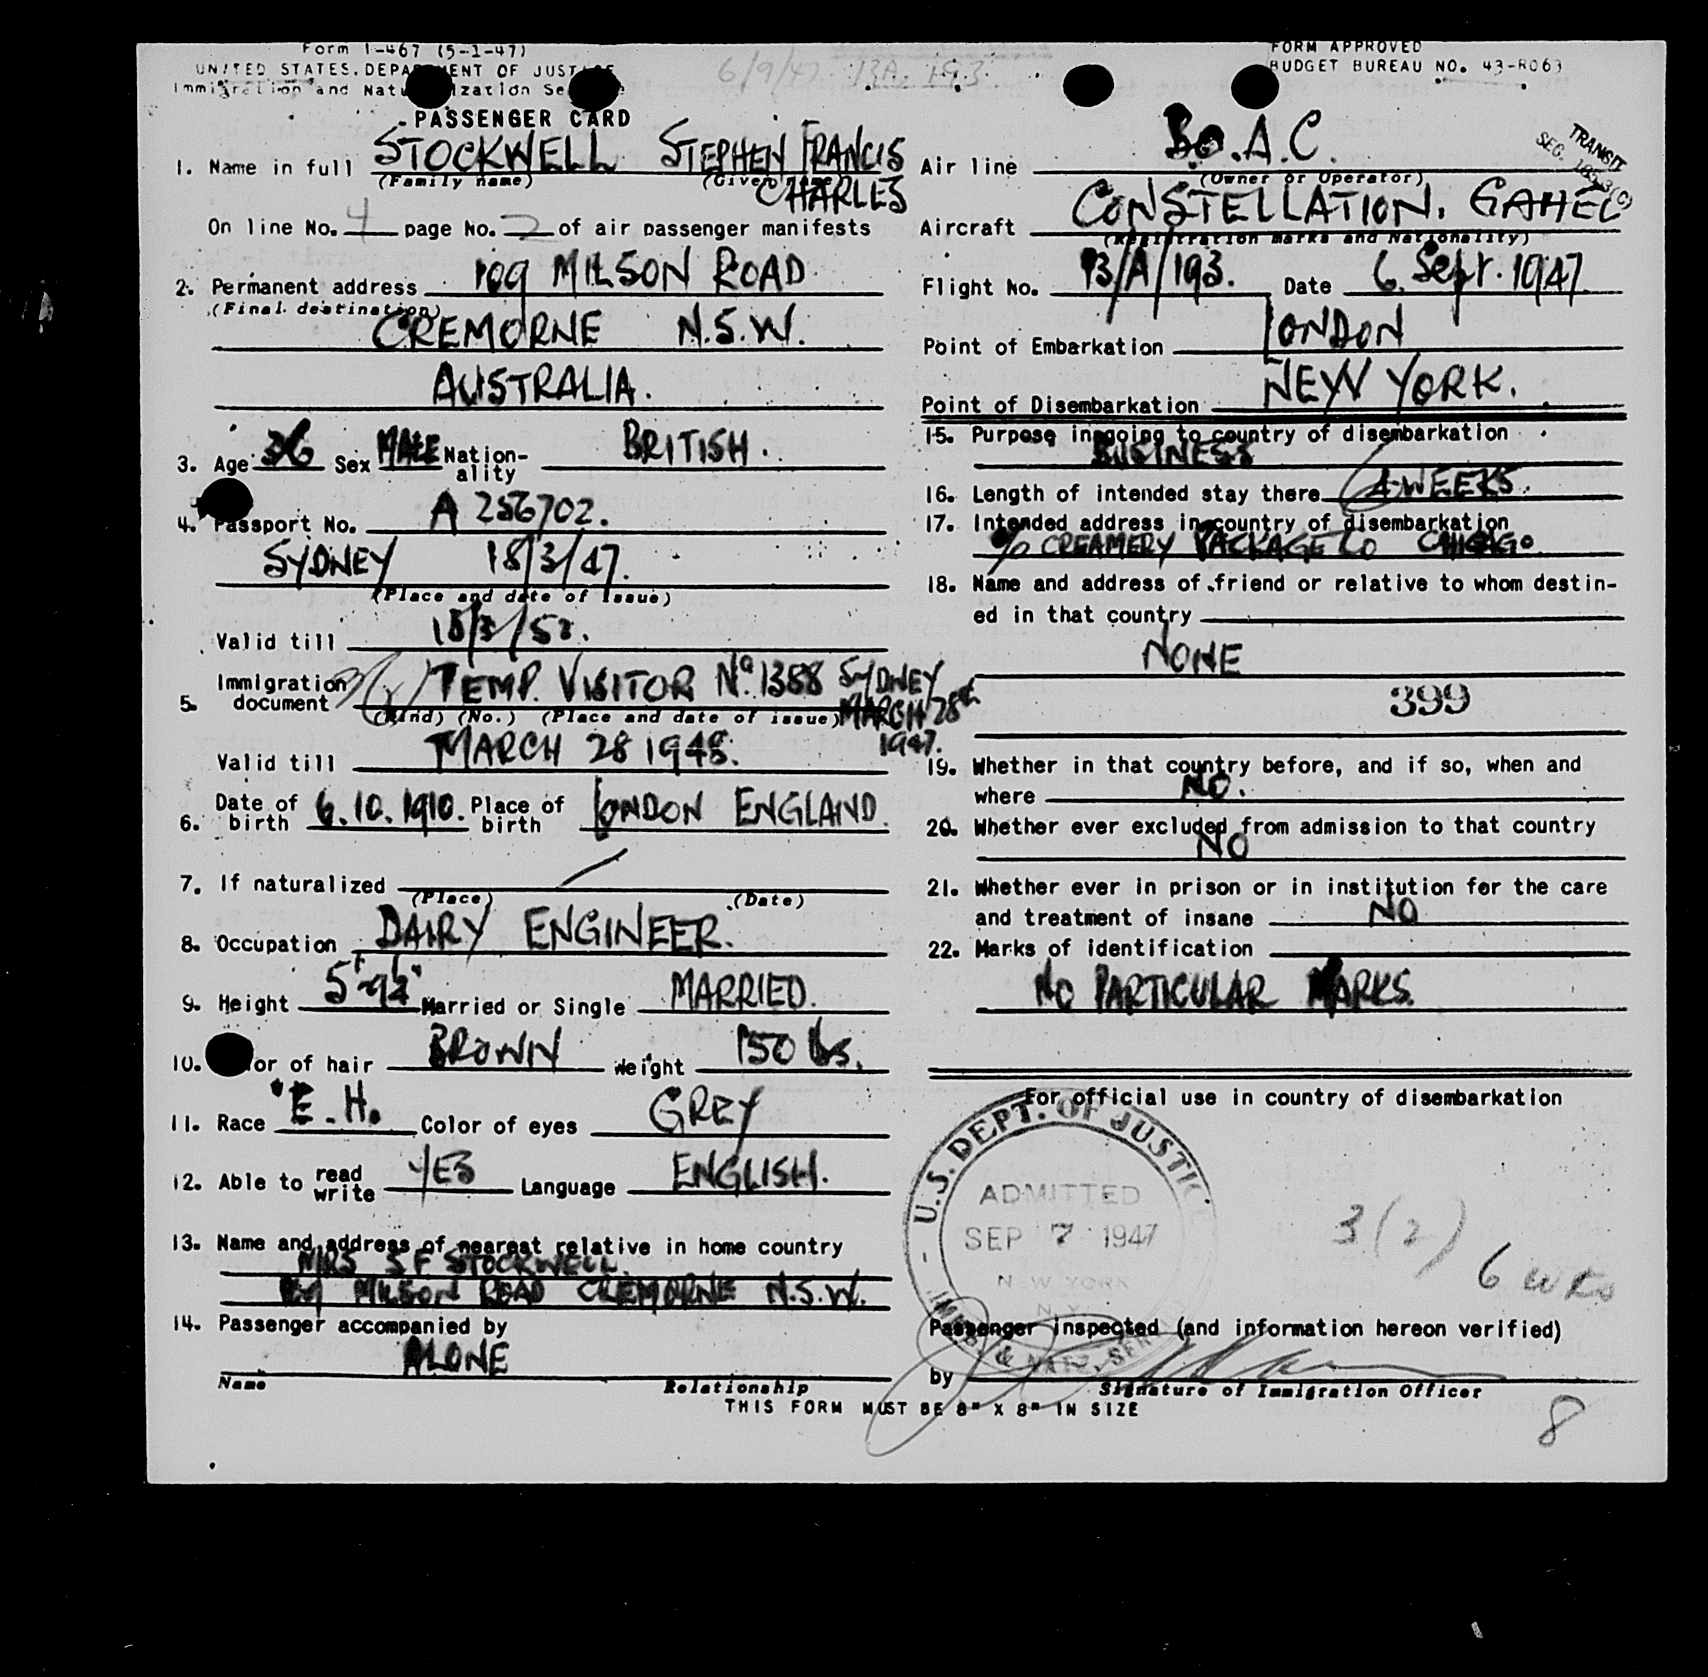 Form I-467 (5-1-47)
UNITED STATES DEPARTMENT OF JUSTICE
Immigration and Naturalization Service
6/9/47 13A 193
FORM APPROVED
BUDGET BUREAU NO. 43-R063
PASSENGER CARD
1. Name in full STOCKWELL STEPHEN FRANCIS
(Family name) (Given name)
CHARLES
On line No. 4 page No. 2 of air passenger manifests
2. Permanent address 109 MILSON ROAD
(Final destination)
CREMORNE N.S.W.
AUSTRALIA.
3. Age 36 Sex MALE Nation-
ality BRITISH.
4. Passport No. A 256702.
SYDNEY 18/3/47.
(Place and date of issue)
Valid till 18/3/52.
5. Immigration
document TEMP. VISITOR No. 1388 SYDNEY
(Kind) (No.) (Place and date of issue) MARCH 28th
1947.
Valid till MARCH 28 1948.
6. Date of
birth 6.10.1910. Place of
birth LONDON ENGLAND.
7. If naturalized
(Place) (Date)
8. Occupation DAIRY ENGINEER.
9. Height 5'-9½" Married or Single MARRIED.
10. Color of hair BROWN Weight 150 lbs.
11. Race "E.H. Color of eyes GREY
12. Able to read
write YES Language ENGLISH.
13. Name and address of nearest relative in home country
MRS S F STOCKWELL.
109 MILSON ROAD CREMORNE N.S.W.
14. Passenger accompanied by
ALONE
Name Relationship
Air line B.O.A.C.
(Owner or Operator)
TRANSIT
SEC.
Aircraft CONSTELLATION. GAHEL
(Registration marks and Nationality)
Flight No. 13/A/193. Date 6. Sept. 1947.
Point of Embarkation LONDON
Point of Disembarkation NEW YORK.
15. Purpose in going to country of disembarkation
BUSINESS
16. Length of intended stay there 4 WEEKS.
17. Intended address in country of disembarkation
c/o CREAMERY PACKAGE CO CHICAGO
18. Name and address of friend or relative to whom destin-
ed in that country
NONE
399
19. Whether in that country before, and if so, when and
where NO.
20. Whether ever excluded from admission to that country
NO
21. Whether ever in prison or in institution for the care
and treatment of insane NO
22. Marks of identification
NO PARTICULAR MARKS.
For official use in country of disembarkation
U.S. DEPT. OF JUSTICE
ADMITTED
SEP 7 1947
NEW YORK
N.Y.
IMM. & NATZ. SERV.
3(2)
6 wks
Passenger inspected (and information hereon verified)
by
Signature of Immigration Officer
THIS FORM MUST BE 8" X 8" IN SIZE
8